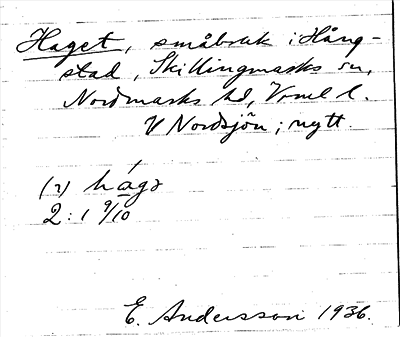 Haget, småbruk i Hång-
stad, Skillingmarks sn,
Nordmarks hd, Vrml l.
V Nordsjön; nytt.
(2) hágə
2:1 9/10
E. Andersson 1936.